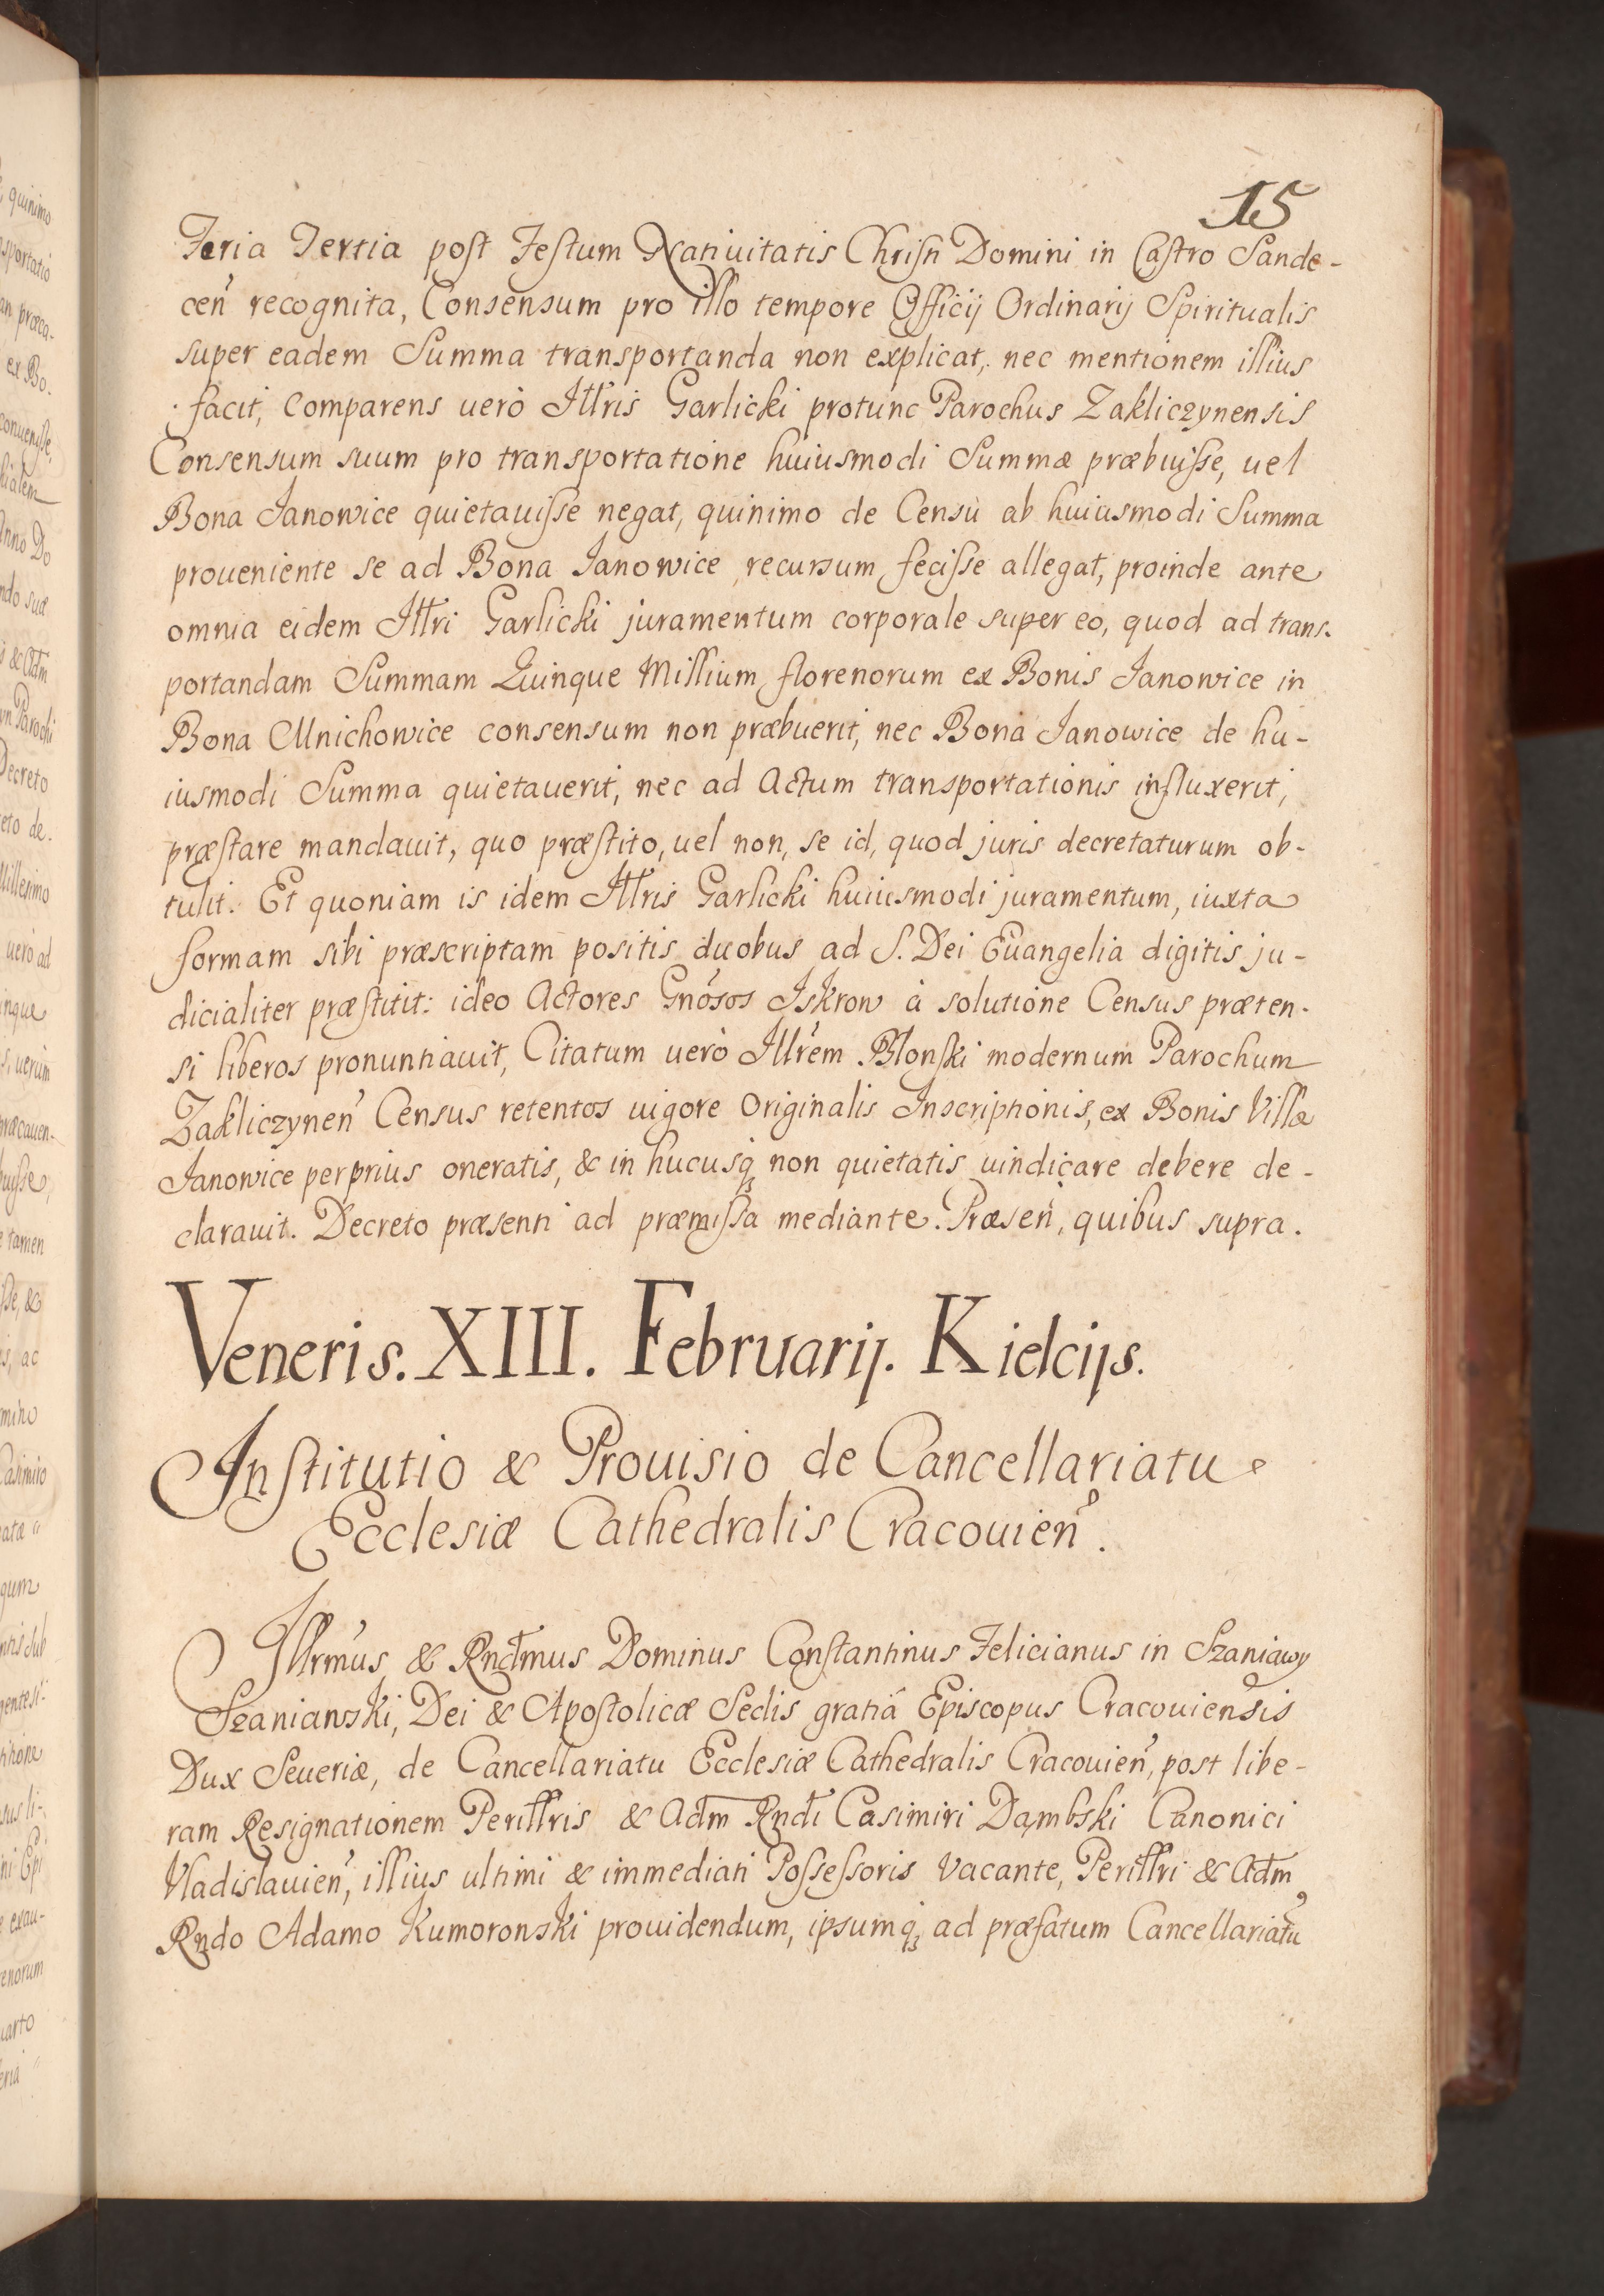 15
Feria Tertia post Festum Natiuitatis Christi Domini in Castro Sande-
cen̄ recognita, Consensum pro illo tempore Officij Ordinarij Spiritualis
super eadem Summa transportanda non explicat, nec mentionem illius
facit, Comparens uerò Illris Garlicki protunc Parochus Zakliczynensis
Consensum suum pro transportatione huiusmodi Summæ præbuisse, uel
Bona Janowice quietauisse negat, quinimo de Censu ab huiusmodi Summa
proueniente se ad Bona Janowice recursum fecisse allegat, proinde ante
omnia eidem Illri Garlicki juramentum corporale super eo, quod ad trans-
portandam Summam Quinque Millium florenorum ex Bonis Janowice in
Bona Mnichowice consensum non præbuerit, nec Bona Janowice de hu-
iusmodi Summa quietauerit, nec ad Actum transportationis influxerit,
præstare mandauit, quo præstito, uel non, se id, quod juris decretaturum ob-
tulit. Et quoniam is idem Illris Garlicki huiusmodi juramentum, iuxta
formam sibi præscriptam positis duobus ad S. Dei Euangelia digitis ju-
dicialiter præstitit: ideo Actores Gnosos Iskrow à solutione Census præten-
si liberos pronuntiauit, Citatum uerò Illrem Błonski modernum Parochum
Zakliczynen̄ Census retentos uigore Originalis Inscriptionis, ex Bonis Villæ
Janowice perprius oneratis, & in hucusq; non quietatis uindicare debere de-
clarauit. Decreto præsenti ad præmissa mediante. Præsen̄, quibus supra.
Veneris. XIII. Februarij. Kielcijs.
Institutio & Prouisio de Cancellariatu
Ecclesiæ Cathedralis Cracouien̄.
Illrmus & Rndmus Dominus Constantinus Felicianus in Szaniawy
Szaniawski, Dei & Apostolicæ Sedis gratiâ Episcopus Cracouiensis
Dux Seueriæ, de Cancellariatu Ecclesiæ Cathedralis Cracouien̄, post libe-
ram Resignationem Perillris & Adm Rndi Casimiri Dąmbski Canonici
Vladislauien̄, illius ultimi & immediati Possessoris vacante, Perillri & Adm
Rndo Adamo Kumorowski prouidendum, ipsumq; ad præfatum Cancellariatū